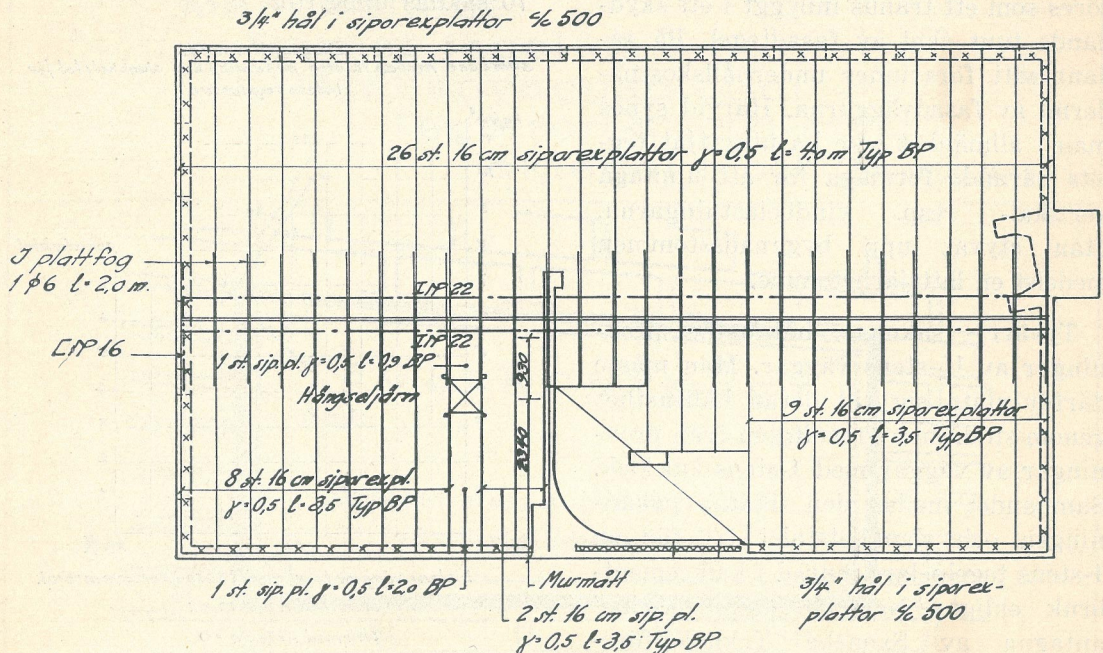 3/4" hål i siporexplattor c/c 500
26 st. 16 cm siporexplattor γ=0,5 l= 4.0 m Typ BP
I plattfog
1 φ6 l=2,0 m.
INP 22
INP 22
[NP 16
1 st. sip.pl. γ=0,5 l=0,9 BP
Hängseljärn
930
2340
9 st. 16 cm siporexplattor
γ=0,5 l=3,5 Typ BP
8 st. 16 cm siporexpl.
γ=0,5 l=3,5 Typ BP
1 st. sip.pl. γ=0,5 l=2.0 BP
Murmått
2 st. 16 cm sip. pl.
γ=0,5 l=3,5 Typ BP
3/4" hål i siporex-
plattor c/c 500